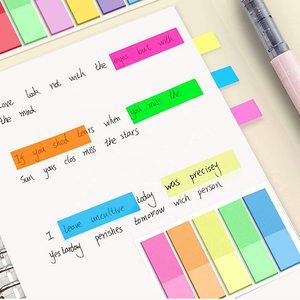 ove look not wich the eyes but with
the mind
If you shed tears when you miss the
Sun you also miss the stars
I leave uncultive today was precisey
Yesterday perishes tomorrow wich person